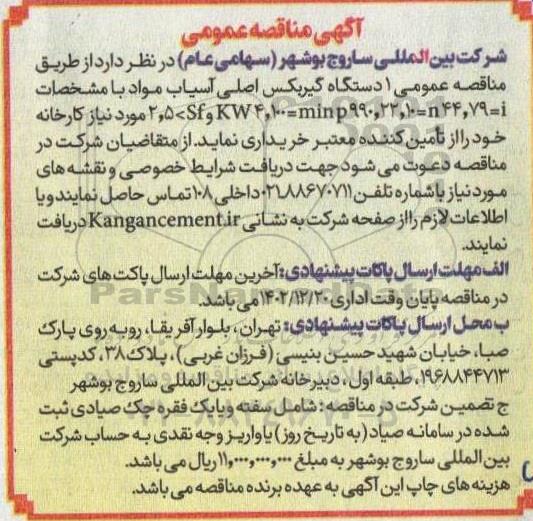 آگهی مناقصه عمومی
شرکت بین‌المللی ساروج بوشهر (سهامی عام) در نظر دارد از طریق
مناقصه عمومی ۱ دستگاه گیربکس اصلی آسیاب مواد با مشخصات
i=۴۴,۷۹ n=۹۹۰,۲۲,۱۰ min p=۴,۱۰۰ KW و Sf>۲,۵ مورد نیاز کارخانه
خود را از تأمین کننده معتبر خریداری نماید. از متقاضیان شرکت در
مناقصه دعوت می شود جهت دریافت شرایط خصوصی و نقشه های
مورد نیاز با شماره تلفن ۰۲۱۸۸۶۷۰۷۱۱ داخلی ۱۰۸ تماس حاصل نمایند و یا
اطلاعات لازم را از صفحه شرکت به نشانی Kangancement.ir دریافت
نمایند.
الف مهلت ارسال پاکات پیشنهادی: آخرین مهلت ارسال پاکت های شرکت
در مناقصه پایان وقت اداری ۱۴۰۲/۱۲/۲۰ می باشد.
ب محل ارسال پاکات پیشنهادی: تهران، بلوار آفریقا، روبه روی پارک
صبا، خیابان شهید حسین بنیسی (فرزان غربی)، پلاک ۳۸، کدپستی
۱۹۶۸۸۴۴۷۱۳، طبقه اول، دبیرخانه شرکت بین المللی ساروج بوشهر
ج تضمین شرکت در مناقصه: شامل سفته و یا یک فقره چک صیادی ثبت
شده در سامانه صیاد (به تاریخ روز) یا واریز وجه نقدی به حساب شرکت
بین المللی ساروج بوشهر به مبلغ ۱۱,۰۰۰,۰۰۰,۰۰۰ ریال می باشد.
هزینه های چاپ این آگهی به عهده برنده مناقصه می باشد.
ParsNamadData